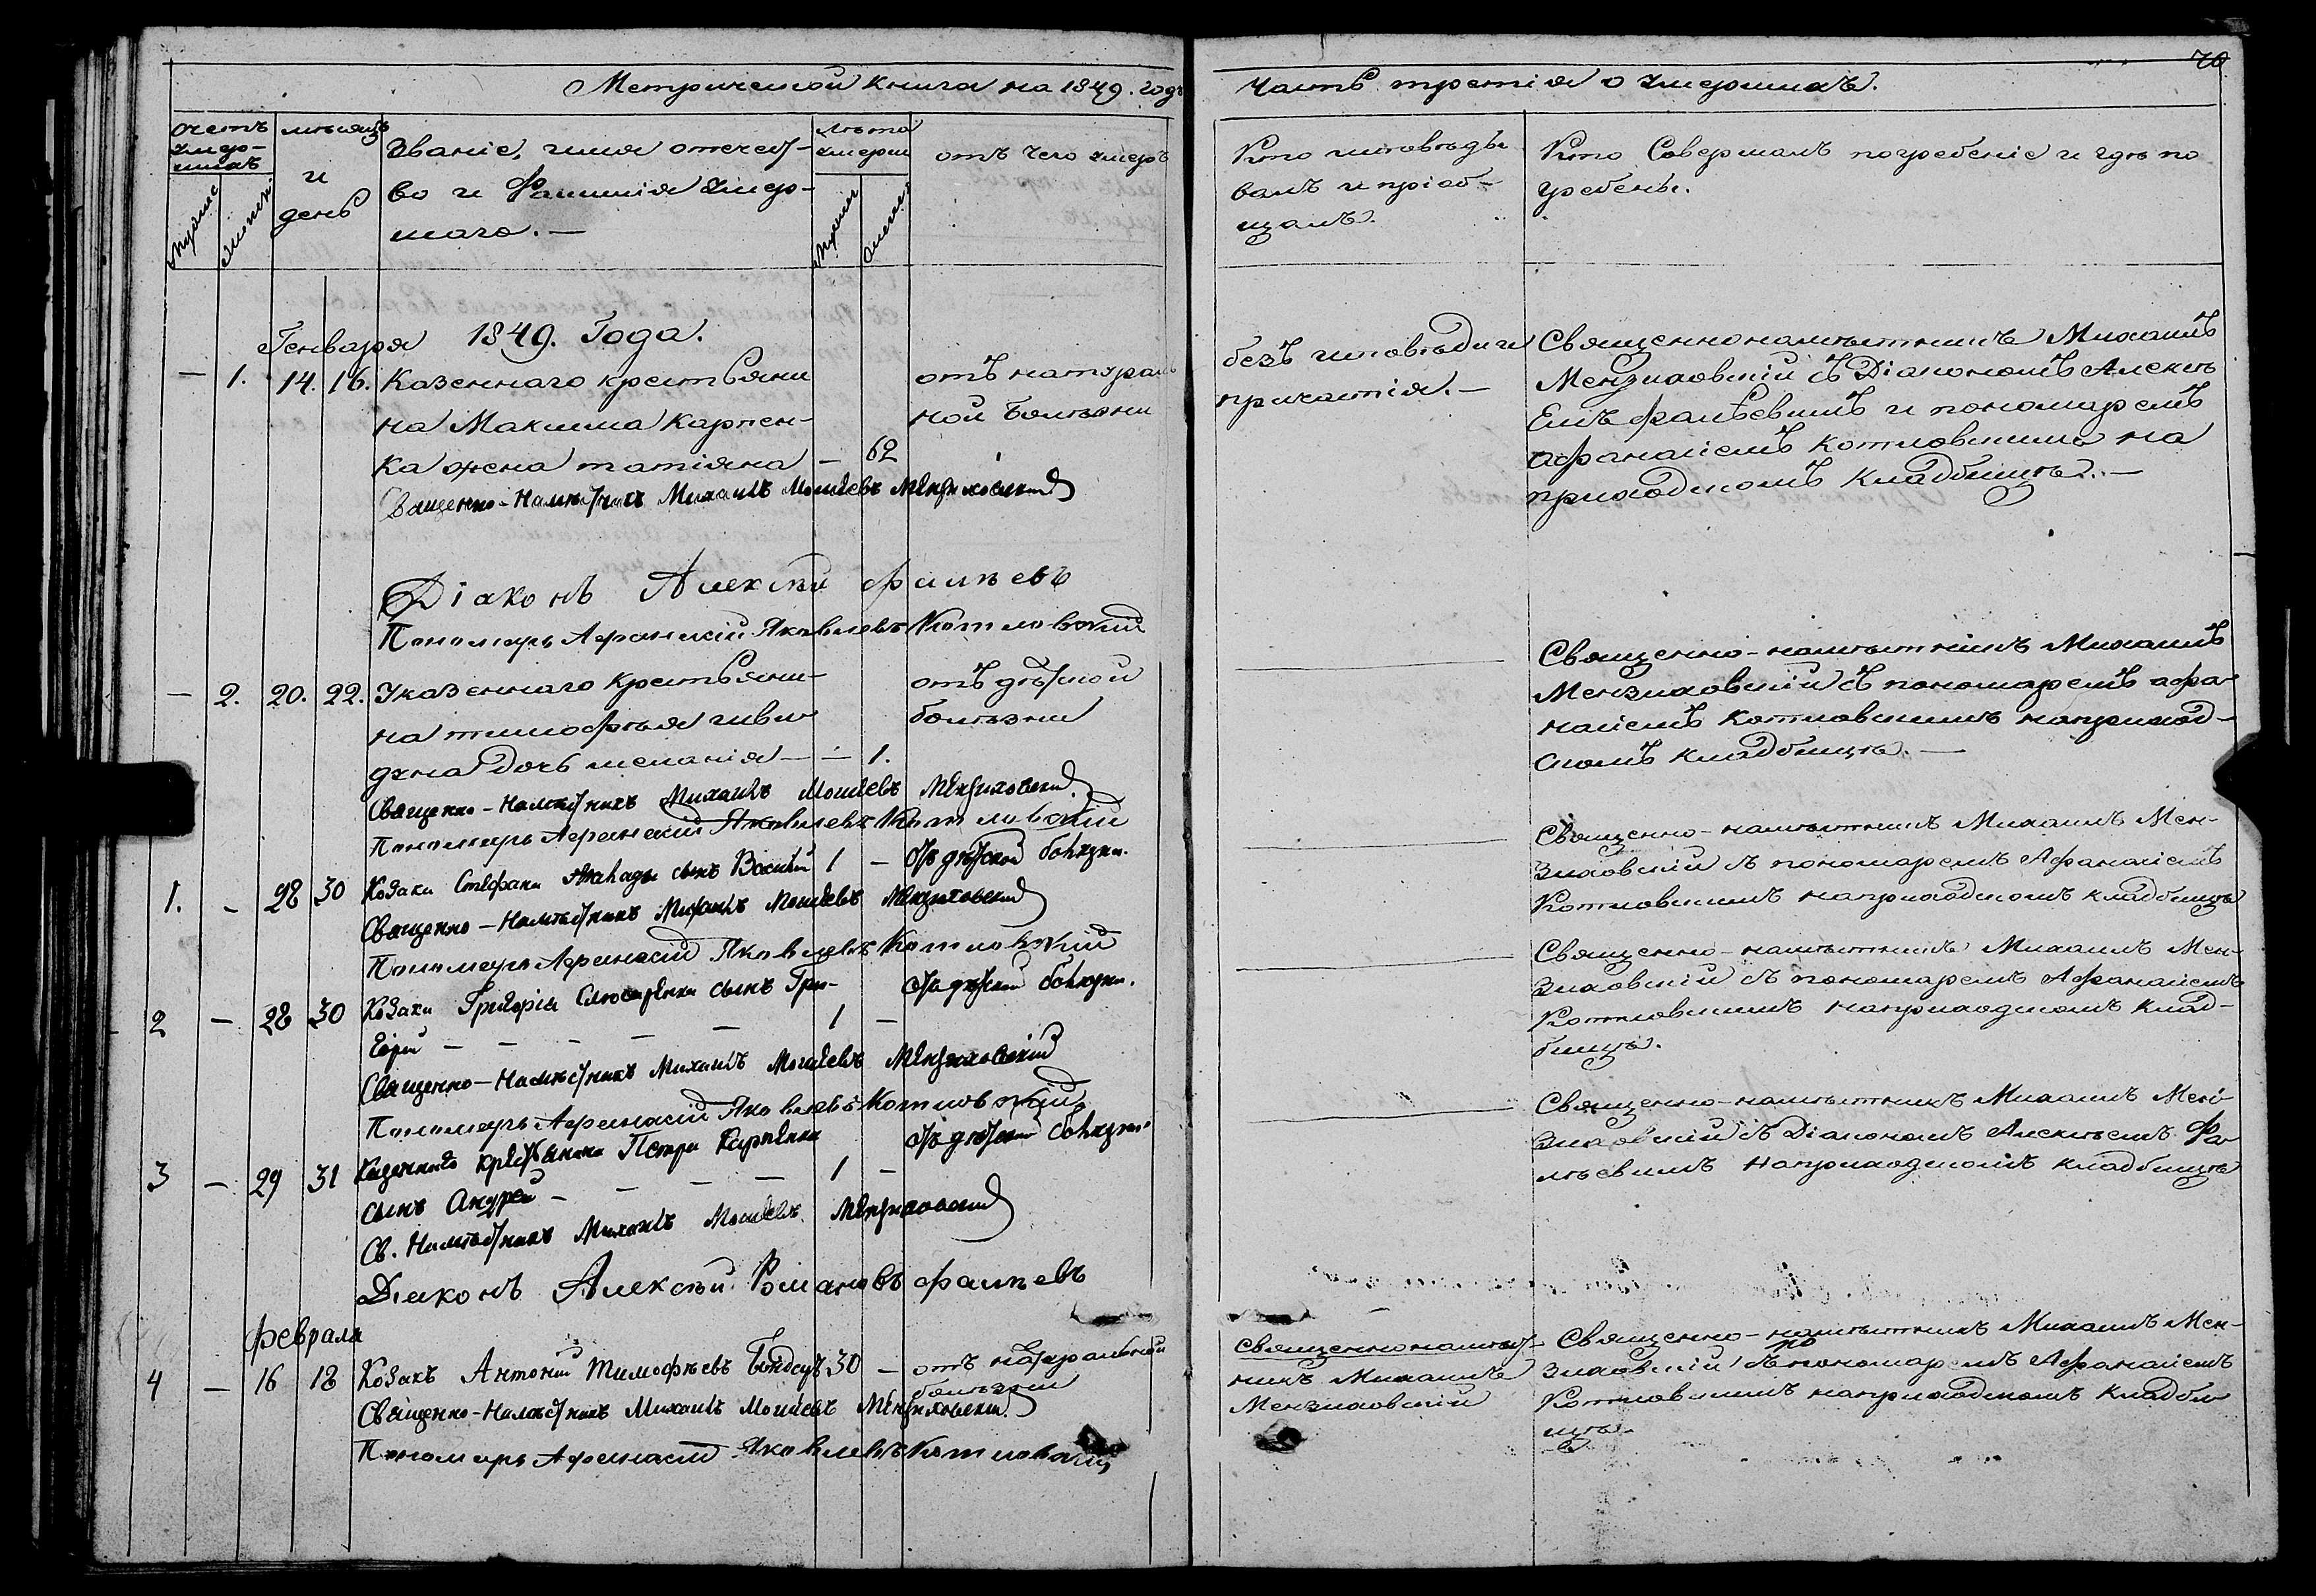 Метрической книги на 1849. годъ
Часть третія о умершихъ.
70
счетъ умер-
шихъ
мужеск
женск
мѣсяцъ
и
день
Званіе, имя отечест-
во и Фамилія умер-
шаго. —
лѣта
умерш
мужеск
женск
отъ чего умеръ
Кто исповѣды
валъ и пріоб-
щалъ.
Кто Совершалъ погребеніе и гдѣ по
гребены.
Генваря 1849. Года.
— 1. 14. 16. Казеннаго крестьяни
на Максима Карпен-
ка жена татіяна — 62
отъ натураль
ной болѣзни
безъ исповѣди и
причастія. —
Священнонамѣстникъ Михаилъ
Мензиховскій съ Діакономъ Алексѣ
емъ фалѣевымъ и пономаремъ
афанасіемъ котловскимъ на
приходскомъ кладбищѣ. —
Священно-Намѣстникъ Михаилъ Моисеевъ Мензиховскій
Діаконъ Алексѣй фалѣевъ
Пономарь Афанасій Яковлевъ Котловскій
— 2. 20. 22. Указеннаго крестьяни-
на тимофѣя
дочь меланія — — 1.
отъ дѣтской
болѣзни
Священно-намѣстникъ Михаилъ
Мензиховскій съ пономаремъ афа-
насіемъ котловскимъ наприход-
скомъ кладбищѣ. —
Священно-Намѣстникъ Михаилъ Моисеевъ Мензиховскій
Пономарь Афанасій Яковлевъ Котловскій
1. — 28 30 Козака Стефана сынъ Василій 1 — Отъ дѣтской болѣзни.
Священно-намѣстникъ Михаилъ Мен-
зиховскій съ пономаремъ Афанасіемъ
Котловскимъ наприходскомъ кладбищѣ
Священно-Намѣстникъ Михаилъ Моисеевъ Мензиховскій
Пономарь Афанасій Яковлевъ Котловскій
2 — 28 30 Козака Григорія Слюсаренка сынъ Гри-
горій — — — — — 1 —
Отъ дѣтской болѣзни.
Священно-намѣстникъ Михаилъ Мен-
зиховскій съ пономаремъ Афанасіемъ
Котловскимъ наприходскомъ клад-
бищѣ.
Священно-Намѣстникъ Михаилъ Моисеевъ Мензиховскій
Пономарь Афанасій Яковлевъ Котловскій
3 — 29 31 Казеннаго крестьянина Петра Карпенка
сынъ Андрей — — — — 1 —
Отъ дѣтской болѣзни
Священно-намѣстникъ Михаилъ Мен-
зиховскій съ Діакономъ Алексѣемъ Фа
лѣевимъ наприходскомъ кладбищѣ
Св. Намѣстникъ Михаилъ Моисеевъ Мензиховскій
Діаконъ Алексѣй Романовъ фалѣевъ
февраля
4 — 16 18 Козакъ Антоній Тимофѣевъ 30 — отъ натуральной
болѣзни
священнонамѣст-
никъ Михаилъ
Мензиховскій
Священно-намѣстникъ Михаилъ Мен-
зиховскій съ пономаремъ Афанасіемъ
Котловскимъ наприходскомъ кладби
щѣ.
Священно-Намѣстникъ Михаилъ Моисеевъ Мензиховскій
Пономарь Афанасій Яковлевъ Котловскій